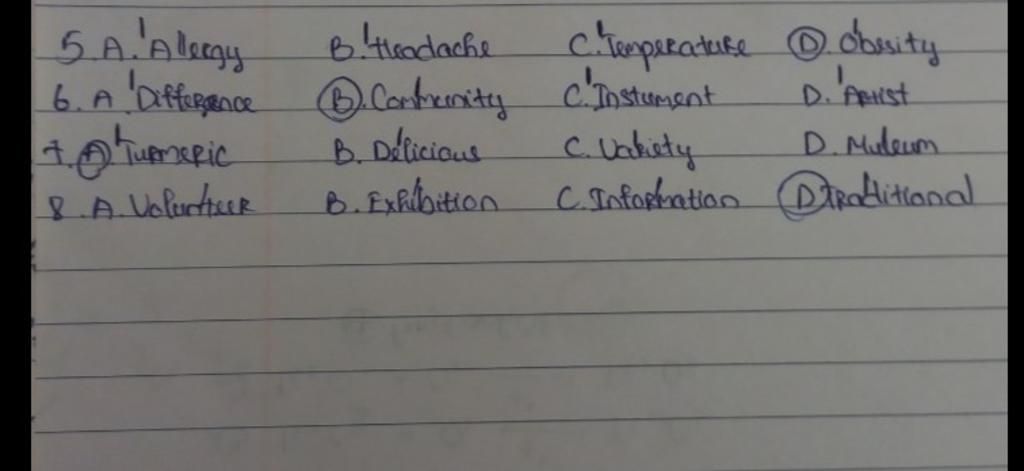 5. A. 'Allergy B. 'Headache C. 'Temperature D. O'besity
6. A 'Difference B. Com'munity C. 'Instument D. 'Artist
7. A 'Turmeric B. De'licious C. Va'riety D. Museum
8. A. Volunteer B. Exhi'bition C. Infor'mation D Tra'ditional